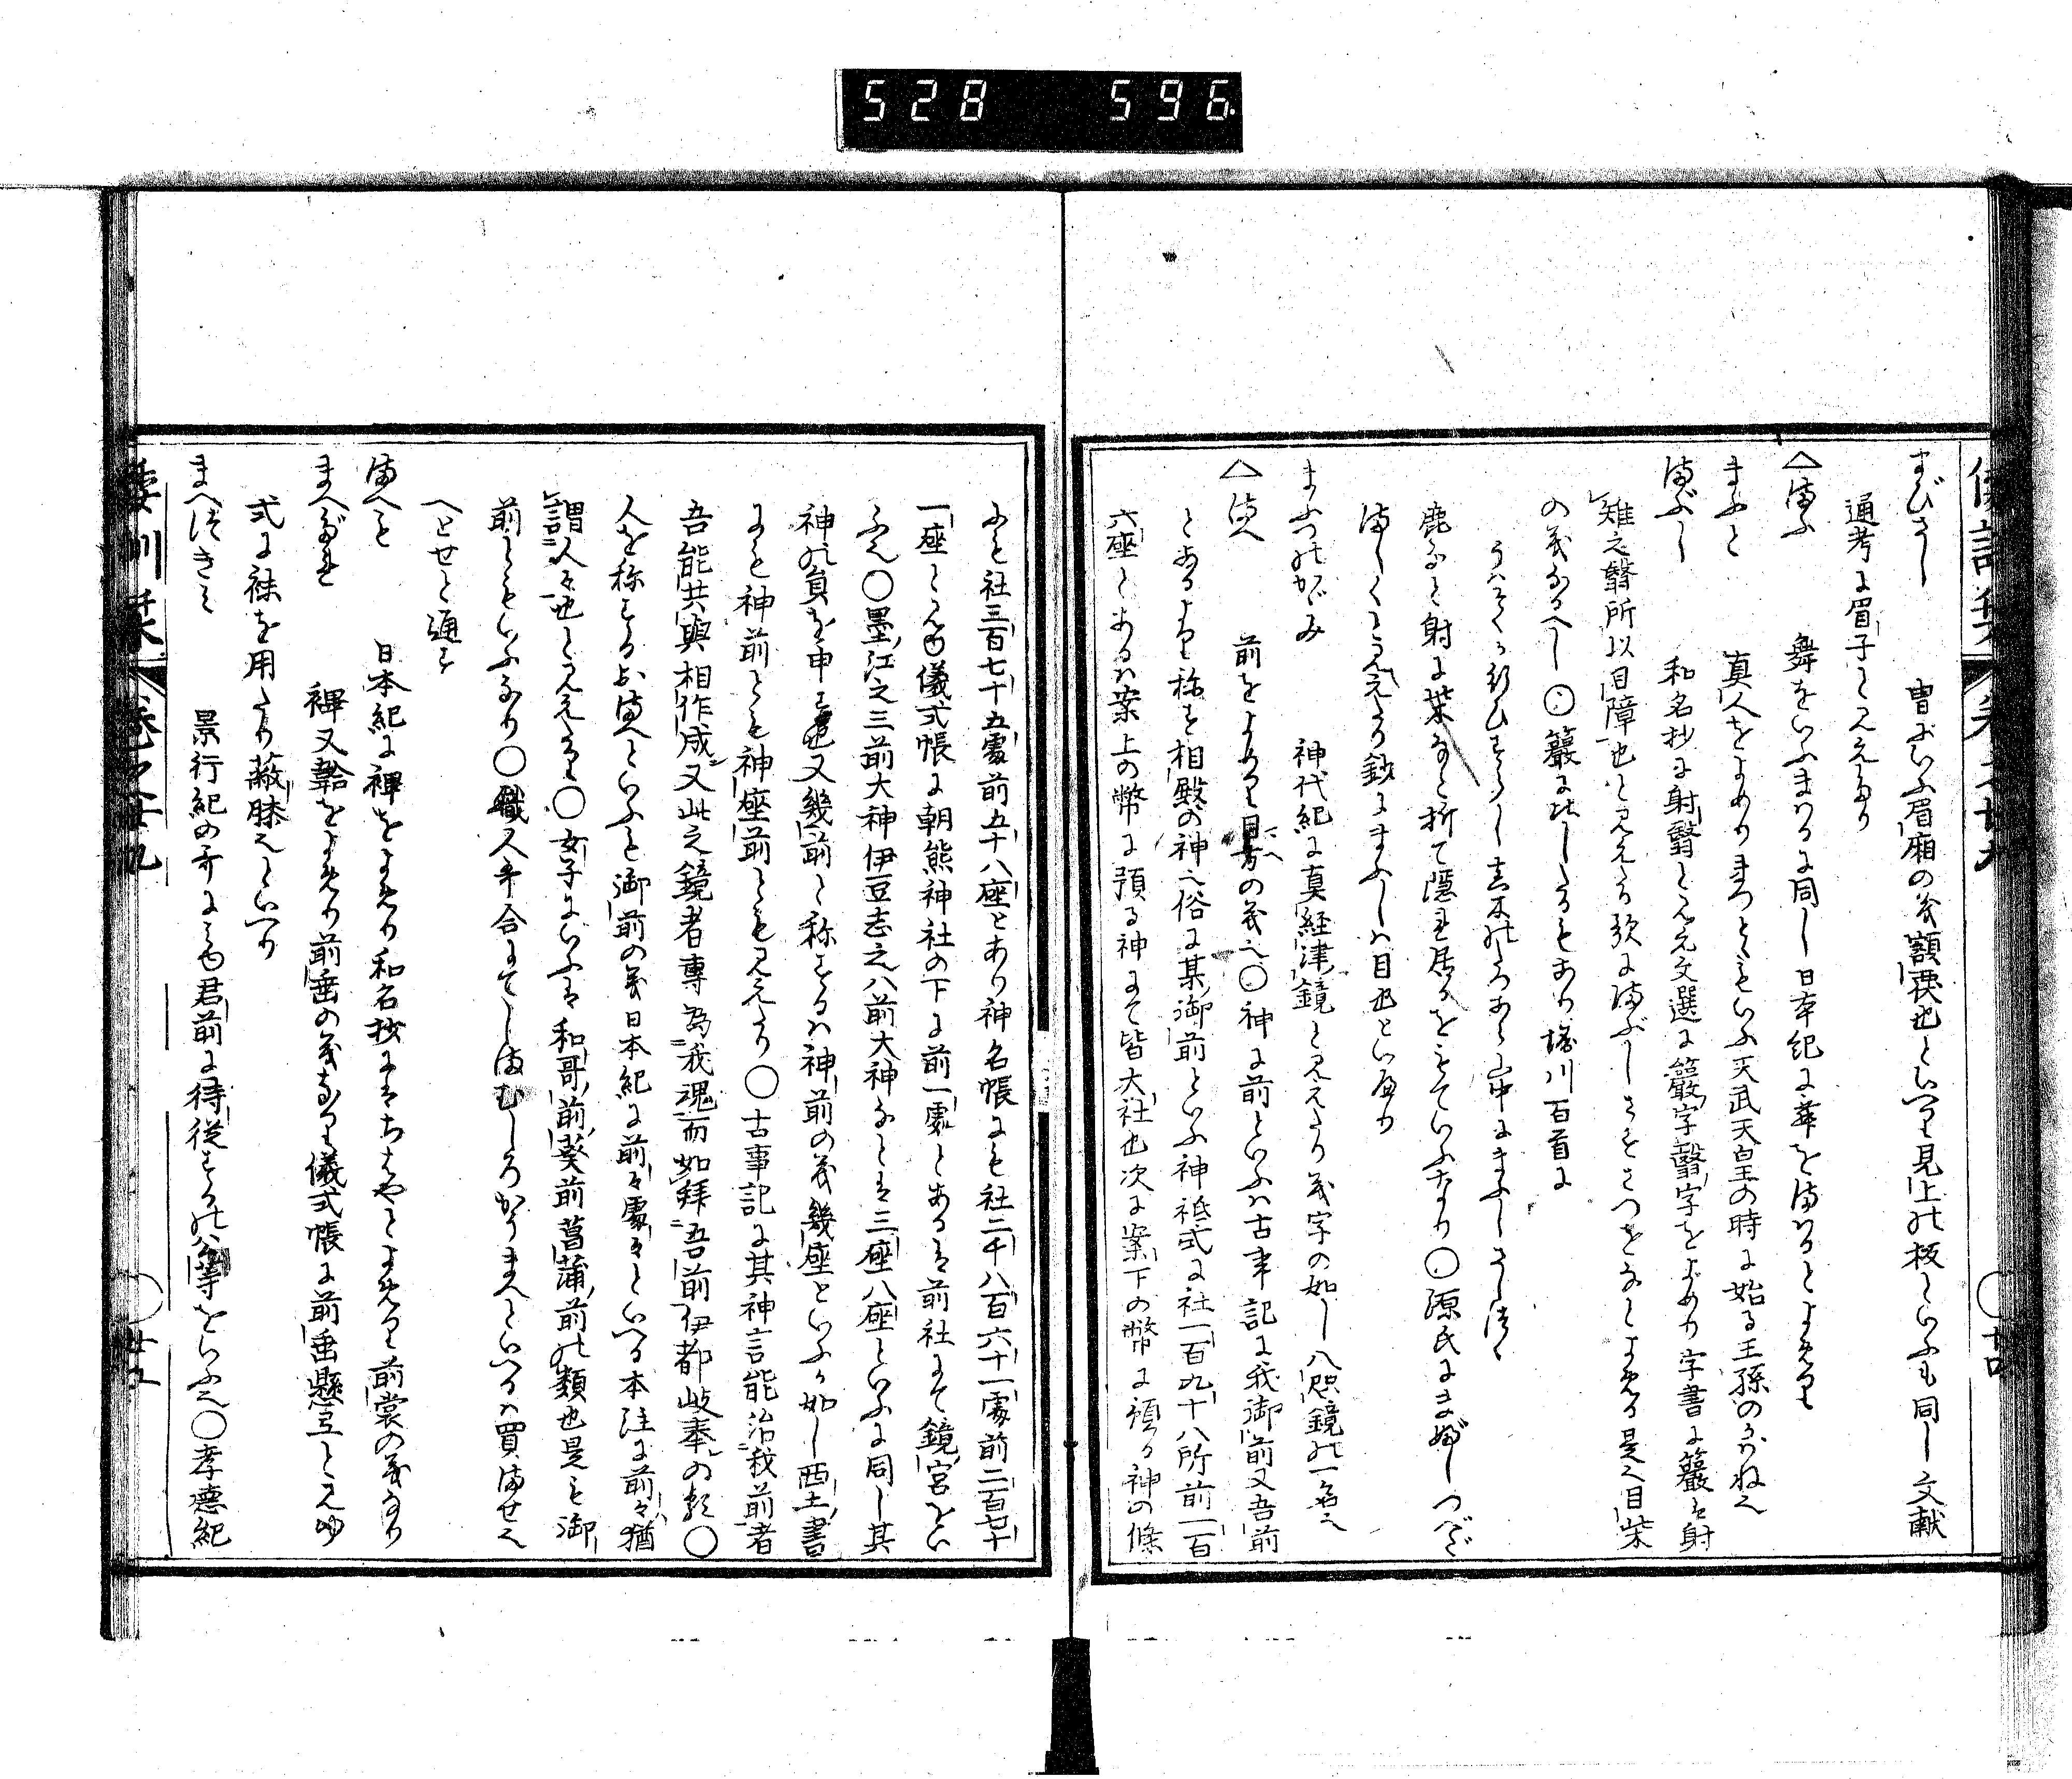 528 596
まびさし 冑にいふ眉廂の義額裱也といへり見上の板といふも同し文献
通考に眉子と見えたり
△まふ 舞をいふまはるに同し日本紀に舞をまはるとよめり
まふと 真人をよめりまつとともいふ天武天皇の時に始る王孫のかはね也
まぶし 和名抄に射翳と見え文選に巖字翳字をよめり字書に䉷は射
雉之翳所以自障也と見えたり歌にまぶしさすさつをなとよめる是也目柴
の義なるへし〇䉷に比したるもあり堀川百首に
鹿なと射に柴なと折て隠れ居るをもていふなり〇源氏にまぶしつべた
ましくと見えたり鈔にまふしは目也といへり
まふつのかゞみ 神代紀に真経津鏡と見えたり義字の如し八咫鏡の一名也
△まへ 前をよめり目方の義也〇神に前といふは古事記に我御前又吾前
とあるよりも称す相殿の神也俗に某御前といふ神祇式に社一百九十八所前一百
六座とあるは案上の幣に預る神にて皆大社也次に案下の幣に預る神の條
にも社三百七十五處前五十八座とあり神名帳にも社二千八百六十一處前二百七十
一座と見ゆ儀式帳に朝熊神社の下に前一處とあるは前社にて鏡宮をい
ふ也〇墨江之三前大神伊豆志之八前大神なとは三座八座といふに同し其
神の員を申す也又幾前と称するは神前の義幾座といふか如し西土書
にも神前とも神座前とも見えたり〇古事記に其神言能治我前者
吾能共與相作成又此之鏡者專為我魂而如拜吾前伊都岐奉の類〇
人を称するにまへといふも御前の義日本紀に前々處々といへる本註に前々猶
謂人々也と見えたり〇女子にいふは和哥前葵前菖蒲前の類也是も御
前ともいふなり〇職人歌合にてしまむしろかうまへといへるは買ませ也
へとせと通す
まへも 日本紀に褌をよめり和名抄にはちはやとよめり前裳の義なり
まへだれ 褌又韐をよめり前垂の義なり儀式帳に前垂懸旦と見ゆ
式に袜を用たり蔽膝也といへり
まへつきみ 景行紀の哥にも君前に待従するの公等をいふ也〇孝德紀
倭訓栞 卷之廿九